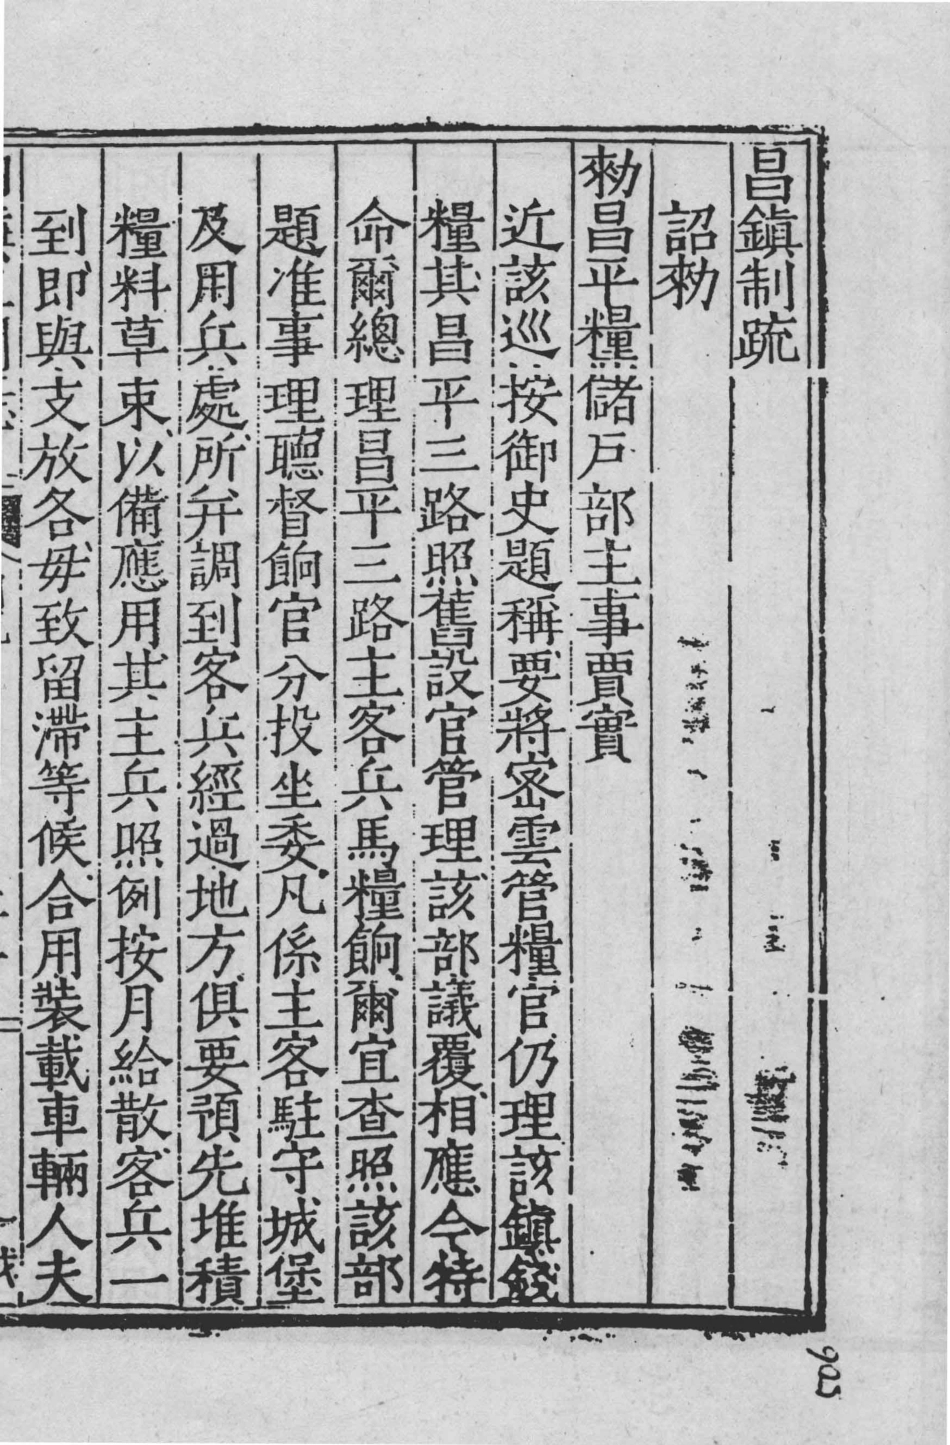 昌鎮制疏
詔勑
勑昌平糧儲戶部主事賈實
近該巡按御史題稱要將宻雲管糧官仍理該鎮錢
糧其昌平三路照舊設官管理該部議覆相應今特
命爾總理昌平三路主客兵馬糧餉爾宜查照該部
題准事理聽督餉官分投坐委凡係主客駐守城堡
及用兵處所并調到客兵經過地方俱要預先堆積
糧料草束以備應用其主兵照例按月給散客兵一
到即與支放各毋致留滯等候合用裝載車輛人夫
925